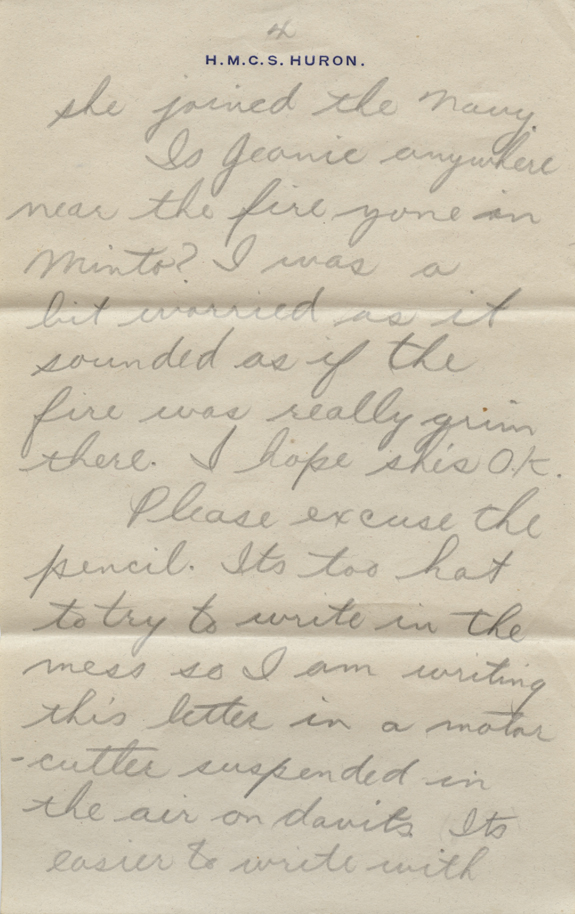 4
H.M.C.S. HURON.
she joined the Navy.
Is Jeanie anywhere
near the fire zone in
Minto? I was a
bit worried as it
sounded as if the
fire was really grim
there. I hope she's O.K.
Please excuse the
pencil. Its too hot
to try to write in the
mess so I am writing
this letter in a motor
-cutter suspended in
the air on davits. Its
easier to write with